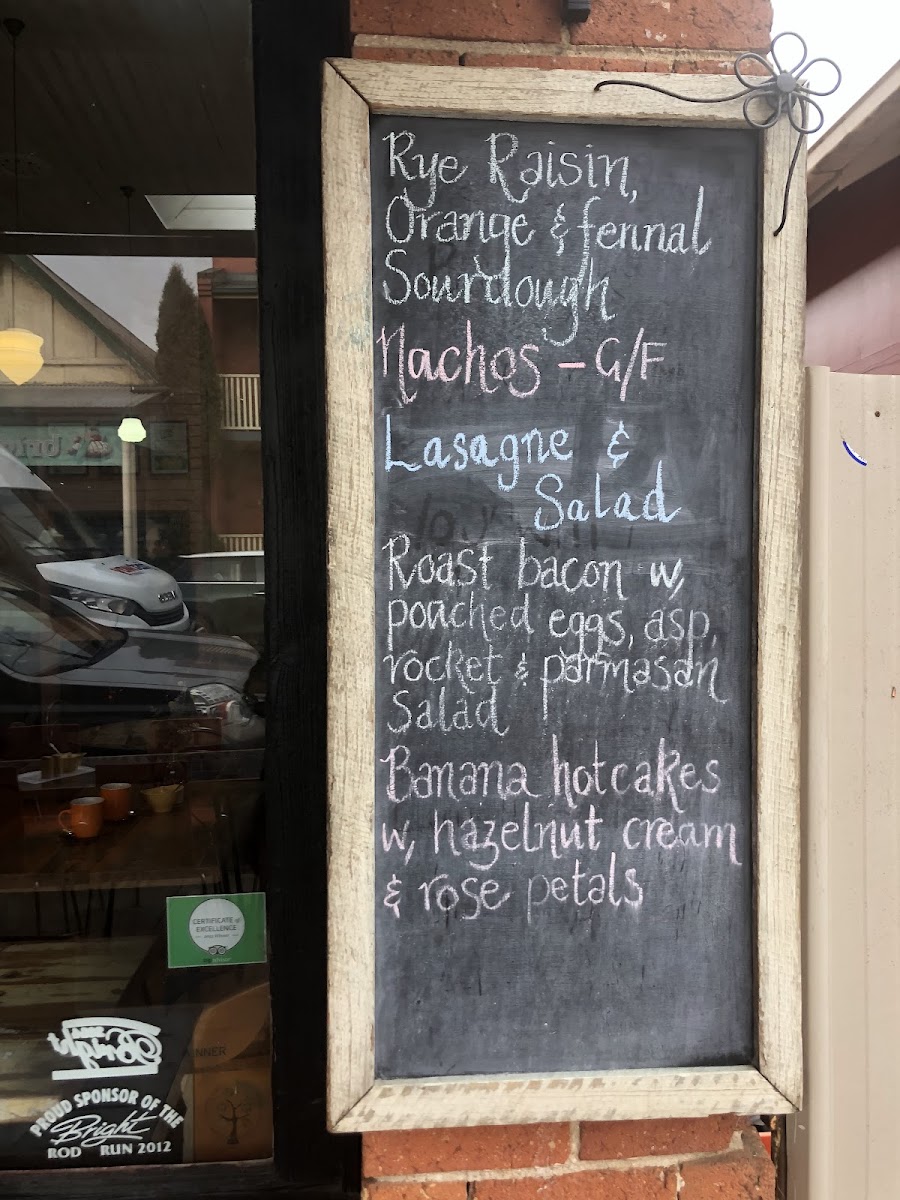 Rye Raisin,
Orange & fennal
Sourdough
Nachos - G/F
Lasagne &
Salad
Roast bacon w,
poached eggs, asp,
rocket & parmasan
Salad
Banana hotcakes
w, hazelnut cream
& rose petals
CERTIFICATE of
EXCELLENCE
PROUD SPONSOR OF THE
Bright
ROD RUN 2012